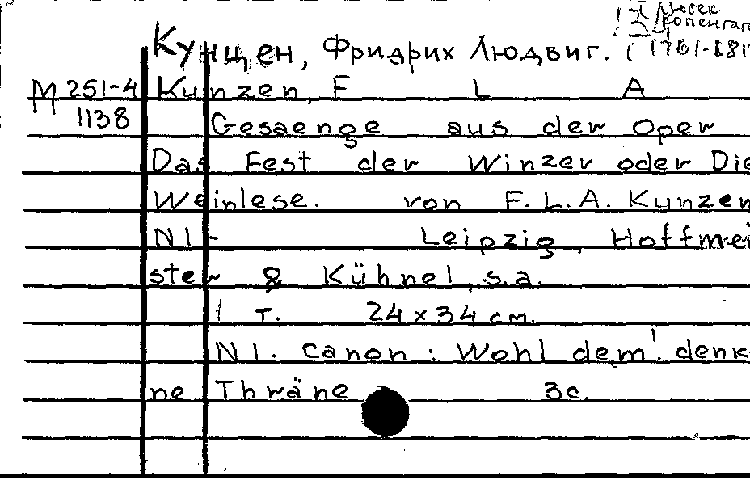 Кунцен, Фридрих Людвиг. (1761-181
M 251-4 Kunzen, F L A
1138 Gesaenge aus der Oper
Das Fest der Winzer oder Die
Weinlese. von F.L.A. Kunzen
N1- Leipzig, Hoffmei
ster & Kühnel, s.a.
1 т. 24 x 34 cm.
N1. Canon: Wohl dem! denk
ne Thräne 3c.